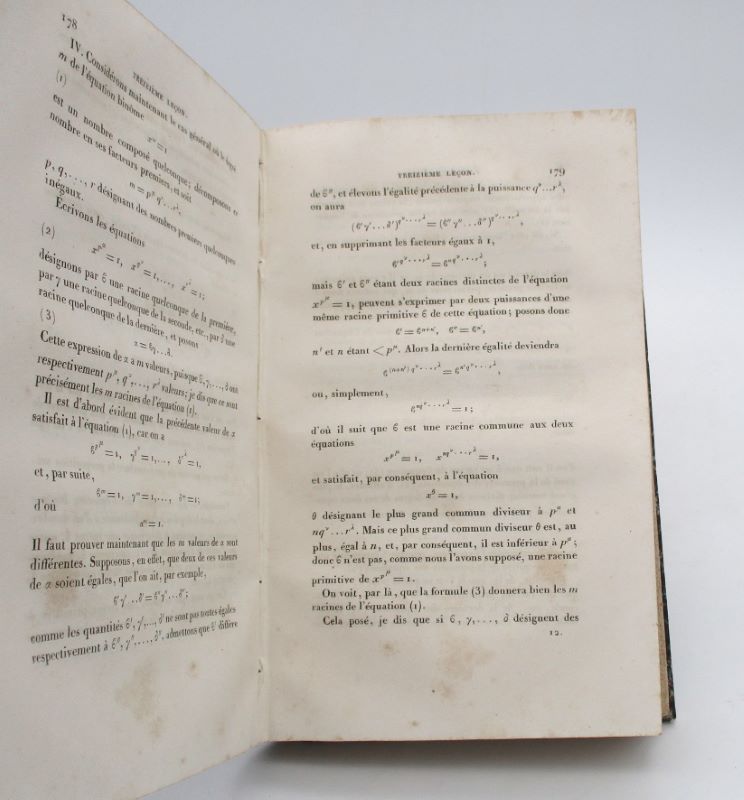 178
TREIZIÈME LEÇON.
IV. Considérons maintenant le cas général où le degré
m de l'équation binôme
(1)
xᵐ = 1
est un nombre composé quelconque; décomposons ce
nombre en ses facteurs premiers, et soit
m = p^μ q^ν...r^λ,
p, q,..., r désignant des nombres premiers quelconques
inégaux.
Écrivons les équations
(2)
x^{p^μ} = 1, x^{q^ν} = 1,..., x^{r^λ} = 1;
désignons par ϐ une racine quelconque de la première,
par γ une racine quelconque de la seconde, etc., par δ une
racine quelconque de la dernière, et posons
(3)
α = ϐγ...δ.
Cette expression de α a m valeurs, puisque ϐ, γ,..., δ ont
respectivement p^μ, q^ν,..., r^λ valeurs; je dis que ce sont
précisément les m racines de l'équation (1).
Il est d'abord évident que la précédente valeur de α
satisfait à l'équation (1), car on a
ϐ^{p^μ} = 1, γ^{q^ν} = 1,..., δ^{r^λ} = 1,
et, par suite,
ϐᵐ = 1, γᵐ = 1,..., δᵐ = 1;
d'où
αᵐ = 1.
Il faut prouver maintenant que les m valeurs de α sont
différentes. Supposons, en effet, que deux de ces valeurs
de α soient égales, que l'on ait, par exemple,
ϐ′γ′...δ′ = ϐ″γ″...δ″;
comme les quantités ϐ′, γ′,..., δ′ ne sont pas toutes égales
respectivement à ϐ″, γ″,..., δ″, admettons que ϐ′ diffère
TREIZIÈME LEÇON.
179
de ϐ″, et élevons l'égalité précédente à la puissance q^ν...r^λ,
on aura
(ϐ′γ′...δ′)^{q^ν...r^λ} = (ϐ″γ″...δ″)^{q^ν...r^λ},
et, en supprimant les facteurs égaux à 1,
ϐ′^{q^ν...r^λ} = ϐ″^{q^ν...r^λ};
mais ϐ′ et ϐ″ étant deux racines distinctes de l'équation
x^{p^μ} = 1, peuvent s'exprimer par deux puissances d'une
même racine primitive ϐ de cette équation; posons donc
ϐ′ = ϐ^{n+n′}, ϐ″ = ϐ^{n′},
n′ et n étant < p^μ. Alors la dernière égalité deviendra
ϐ^{(n+n′) q^ν...r^λ} = ϐ^{n′q^ν...r^λ},
ou, simplement,
ϐ^{nq^ν...r^λ} = 1;
d'où il suit que ϐ est une racine commune aux deux
équations
x^{p^μ} = 1, x^{nq^ν...r^λ} = 1,
et satisfait, par conséquent, à l'équation
x^θ = 1,
θ désignant le plus grand commun diviseur à p^μ et
nq^ν...r^λ. Mais ce plus grand commun diviseur θ est, au
plus, égal à n, et, par conséquent, il est inférieur à p^μ;
donc ϐ n'est pas, comme nous l'avons supposé, une racine
primitive de x^{p^μ} = 1.
On voit, par là, que la formule (3) donnera bien les m
racines de l'équation (1).
Cela posé, je dis que si ϐ, γ,..., δ désignent des
12.